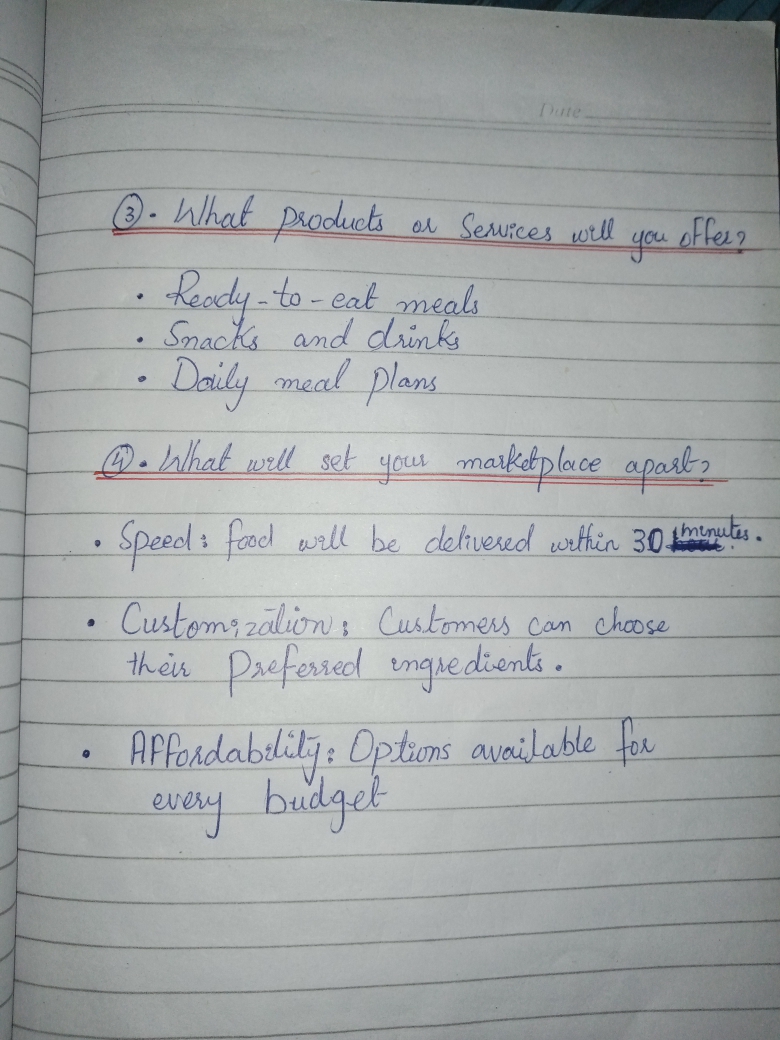 Date
③. What products or Services will you offer?
• Ready-to-eat meals
• Snacks and drinks
• Daily meal plans
④. What will set your marketplace apart?
• Speed: food will be delivered within 30 minutes.
• Customization: Customers can choose
their preferred ingredients.
• Affordability: Options available for
every budget